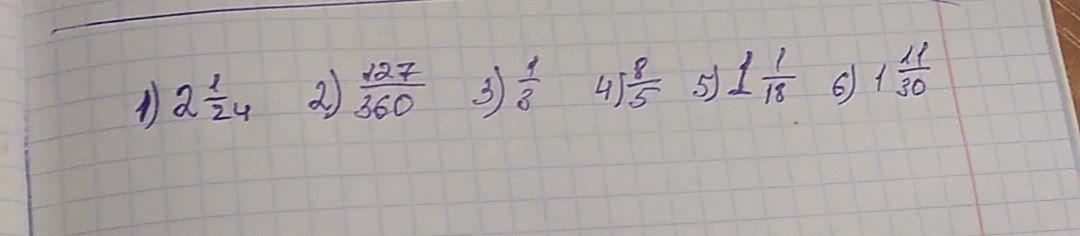 1) 2 1/24 2) 127/360 3) 1/3 4) 8/5 5) 1 1/18 6) 1 11/30